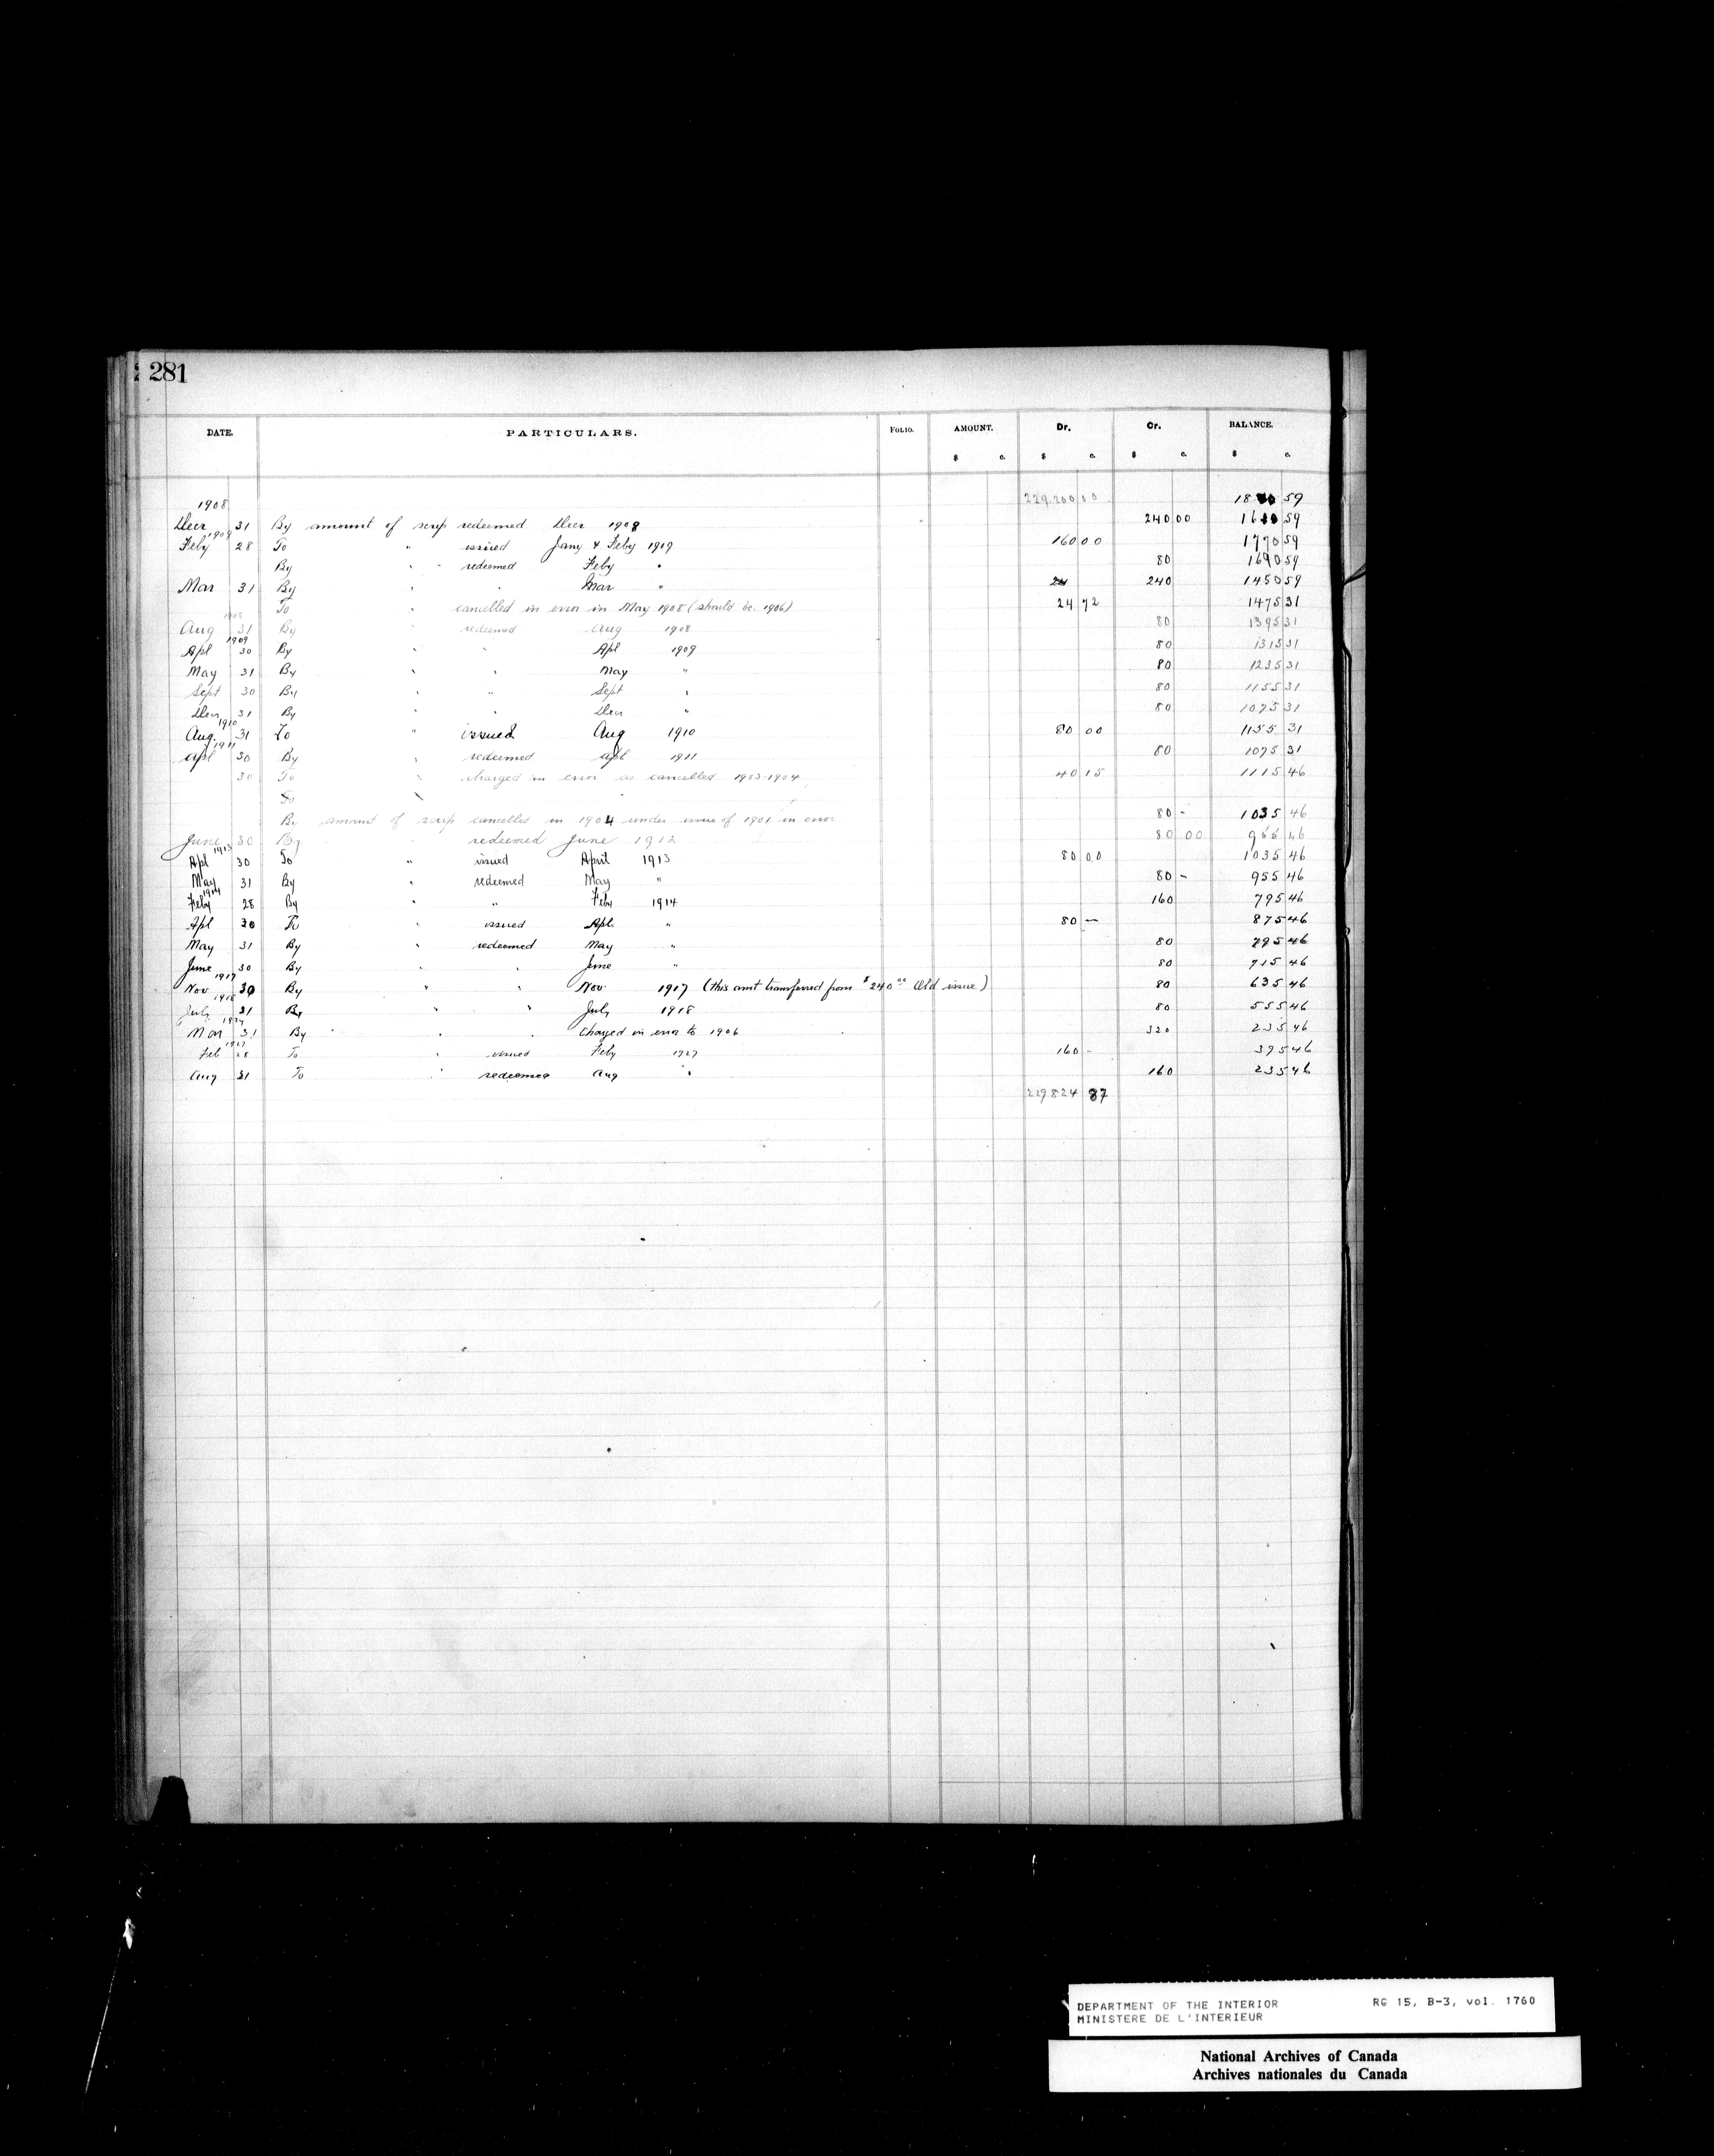 281
DATE. PARTICULARS. FOLIO. AMOUNT. Dr. Cr. BALANCE.
$ c. $ c. $ c. $ c.
1908 229,200 00 18 59
Decr 31 By amount of scrip redeemed Decr 1908 240 00 16 59
1909
Feby 28 To " issued Jany & Feby 1909 160 00 1770 59
By " " redeemed Feby " 80 1690 59
Mar 31 By " " Mar " 24 240 1450 59
To " cancelled in error in May 1908 (should be 1906) 24 72 1475 31
1908
Aug 31 By " redeemed Aug 1908 80 1395 31
1909
Apl 30 By " " Apl 1909 80 1315 31
May 31 By " " May " 80 1235 31
Sept 30 By " " Sept " 80 1155 31
Decr 31 By " " Decr " 80 1075 31
1910
Aug. 31 To " issued Aug 1910 80 00 1155 31
1911
Apl 30 By " redeemed Apl 1911 80 1075 31
30 To " charged in error as cancelled 1903-1904 40 15 1115 46
To "
By amount of scrip cancelled in 1904 under issue of 1901 in error 80 - 1035 46
June 30 By " redeemed June 1912 80 00 955 46
1913
Apl 30 To " issued April 1913 80 00 1035 46
May 31 By " redeemed May " 80 - 955 46
1914
Feby 28 By " " Feby 1914 160 795 46
Apl 30 To " issued Apl. " 80 — 875 46
May 31 By " redeemed May " 80 795 46
June 30 By " " June " 80 715 46
1917
Nov 30 By " " Nov. 1917 (this amt transferred from $240.00 Old issue) 80 635 46
1918
July 31 By " " July 1918 80 555 46
Mar 31 By " " " Charged in error to 1906 320 235 46
1927
Feb 28 To " issued Feby 1927 160 - 395 46
Aug 31 To " redeemed Aug " 160 235 46
229824 87
DEPARTMENT OF THE INTERIOR RG 15, B-3, vol. 1760
MINISTERE DE L'INTERIEUR
National Archives of Canada
Archives nationales du Canada